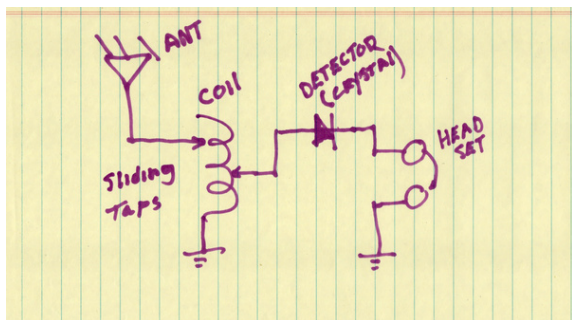 ANT
COIL
DETECTOR
(CRYSTAL)
HEAD
SET
Sliding
Taps